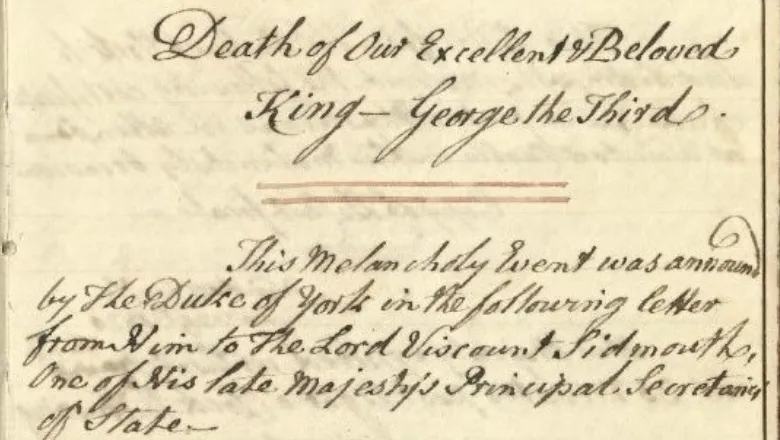 Death of Our Excellent & Beloved
King — George the Third.
This Melancholy Event was annound
by The Duke of York in the following letter
from Him to The Lord Viscount Sidmouth,
One of His late Majesty's Principal Secretarys
of State. —